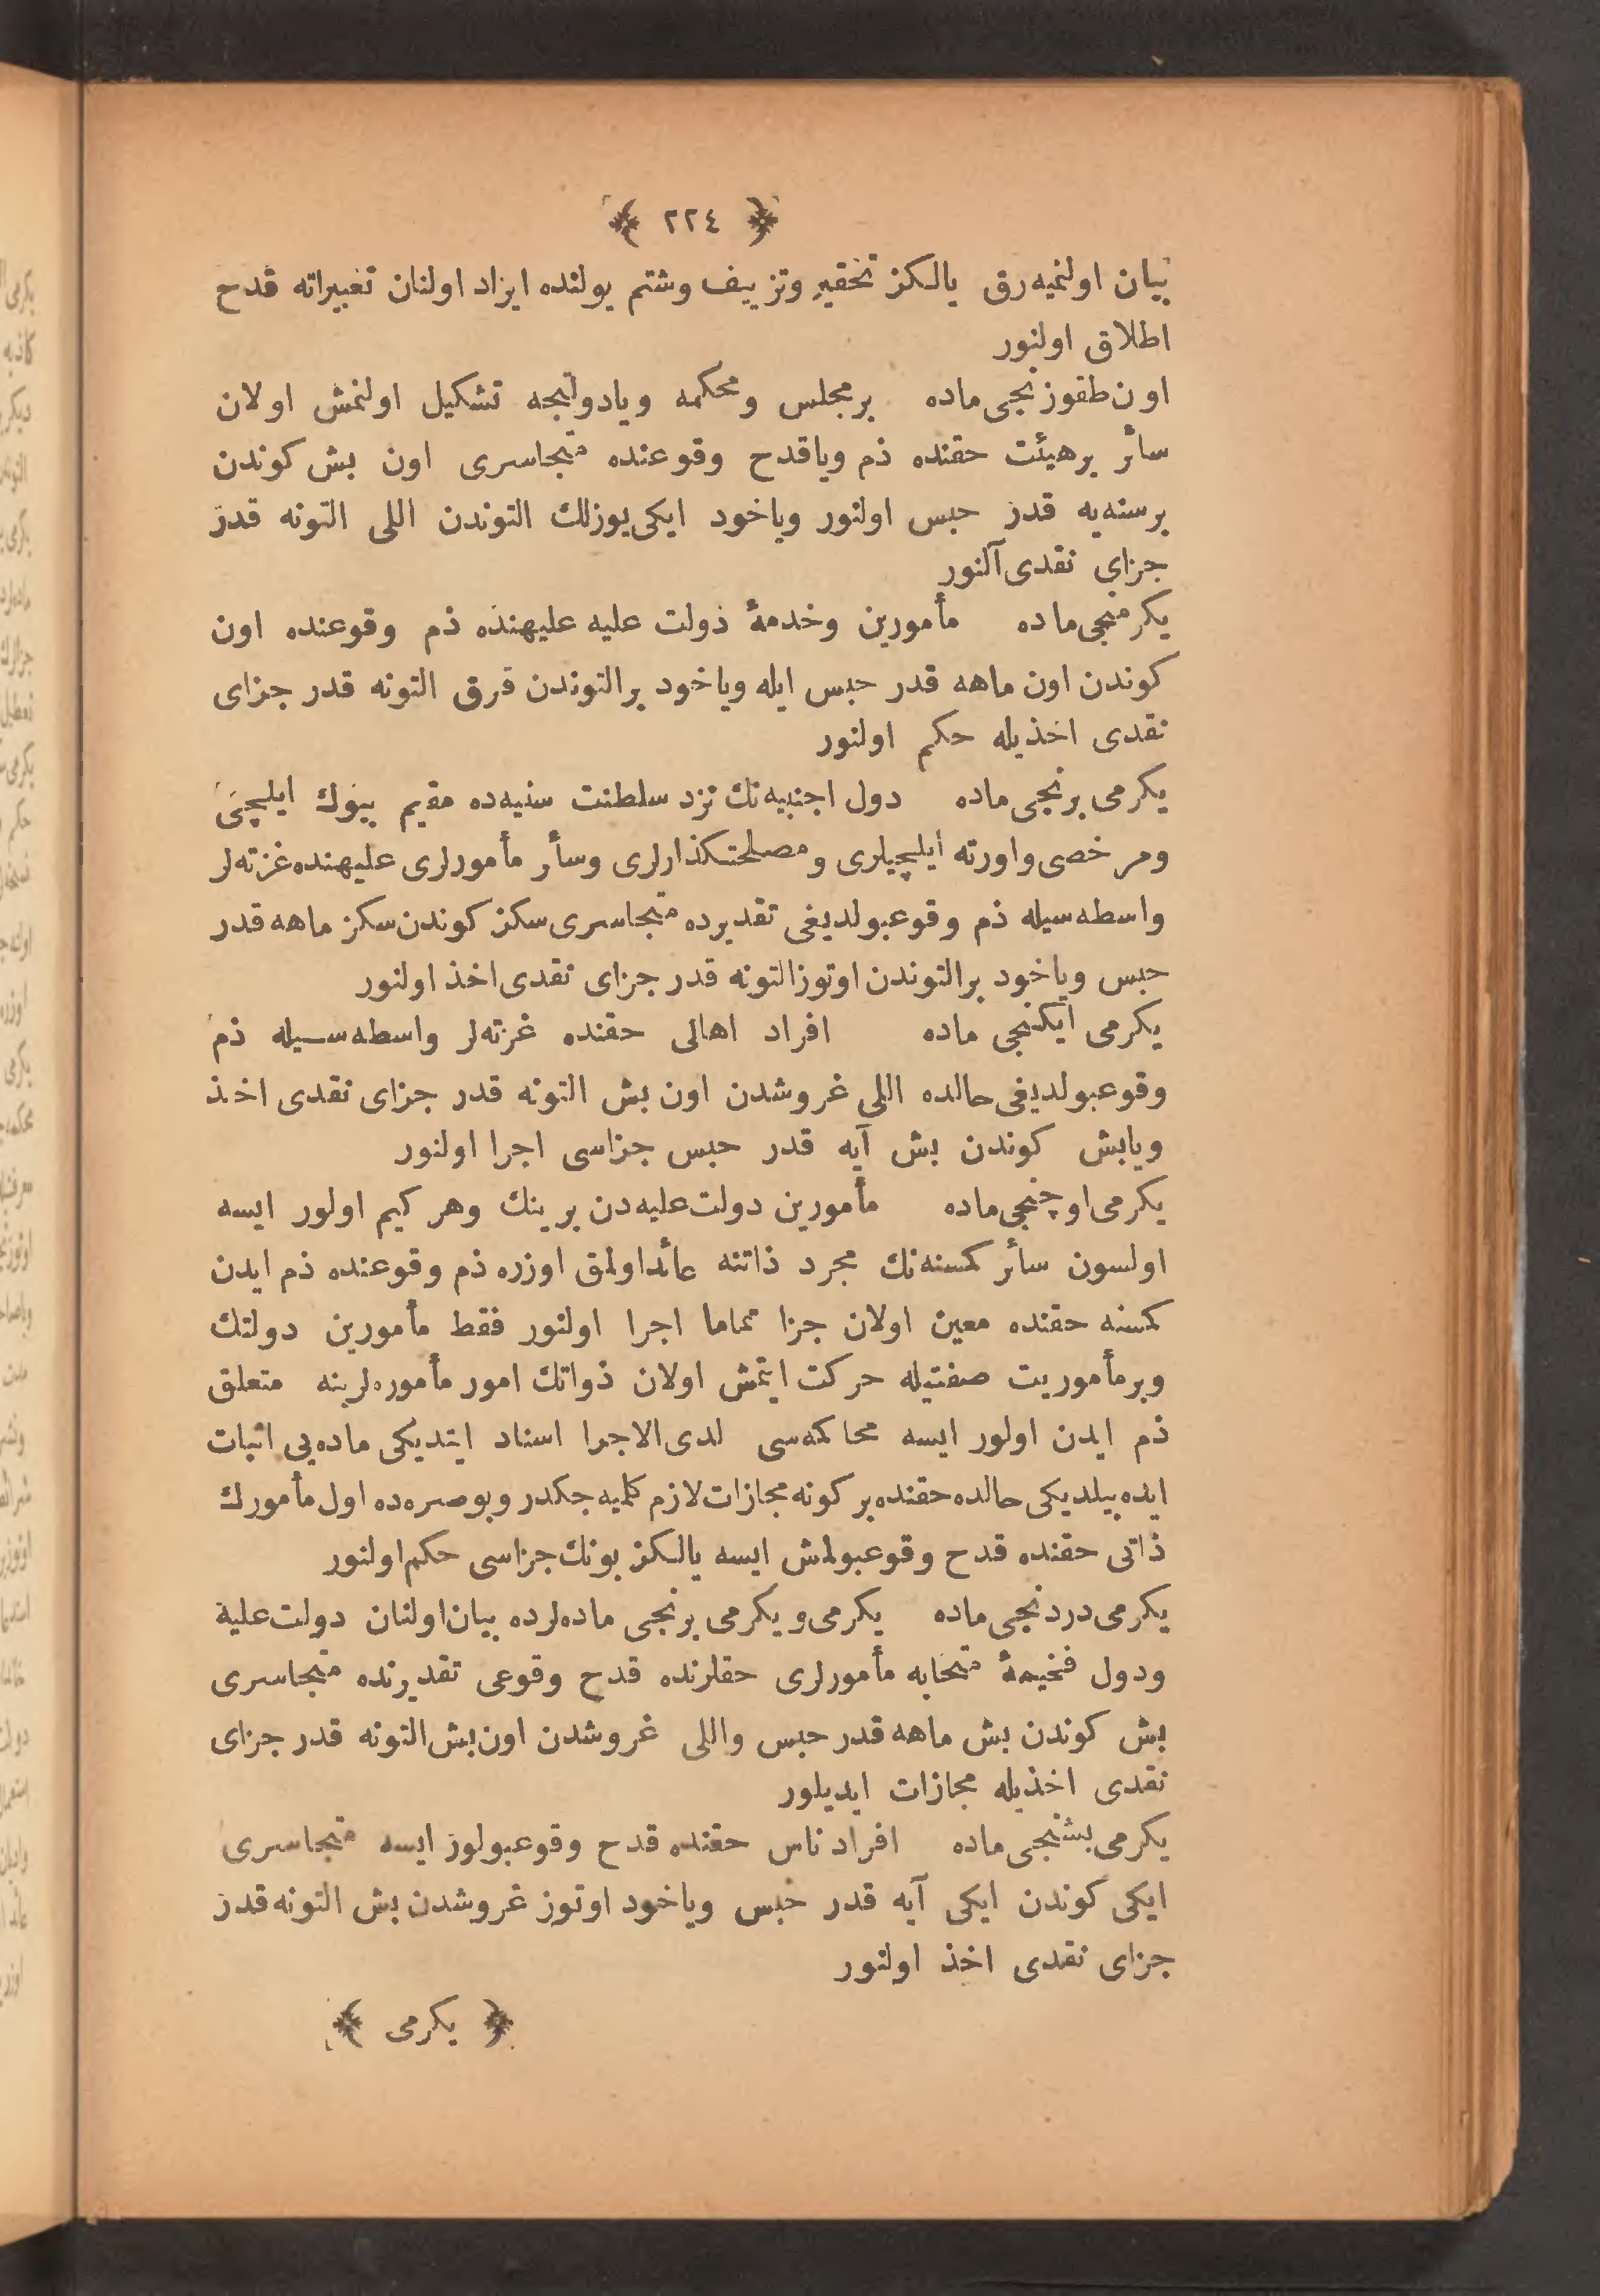 ﴿ ٢٢٤ ﴾
بیان اولنمیه‌رق یالکز تحقیر وتزییف وشتم یولنده ایراد اولنان تعبیراته قدح
اطلاق اولنور
اون طقوزنجی ماده بر مجلس ومحکمه ویا دولتجه تشکیل اولنمش اولان
سائر بر هیئت حقنده ذم ویا قدح وقوعنده متجاسری اون بش کوندن
بر سنه‌یه قدر حبس اولنور ویاخود ایکی یوزلك التوندن اللی التونه قدر
جزای نقدی آلنور
یکرمنجی ماده مأمورین وخدمۀ دولت علیه علیهنده ذم وقوعنده اون
کوندن اون ماهه قدر حبس ایله ویاخود بر التوندن قرق التونه قدر جزای
نقدی اخذیله حکم اولنور
یکرمی برنجی ماده دول اجنبیه‌نك نزد سلطنت سنیه‌ده مقیم بیوك ایلچی
ومرخصی واورته ایلچیلری ومصلحتکذارلری وسائر مأمورلری علیهنده غزته‌لر
واسطه‌سیله ذم وقوعبولدیغی تقدیرده متجاسری سکز کوندن سکز ماهه قدر
حبس ویاخود بر التوندن اوتوز التونه قدر جزای نقدی اخذ اولنور
یکرمی ایکنجی ماده افراد اهالی حقنده غزته‌لر واسطه‌سیله ذم
وقوعبولدیغی حالده اللی غروشدن اون بش التونه قدر جزای نقدی اخذ
ویا بش کوندن بش آیه قدر حبس جزاسی اجرا اولنور
یکرمی اوچنجی ماده مأمورین دولت علیه‌دن برینك وهر کیم اولور ایسه
اولسون سائر کمسنه‌نك مجرد ذاتنه عائد اولمق اوزره ذم وقوعنده ذم ایدن
کمسنه حقنده معین اولان جزا تماما اجرا اولنور فقط مأمورین دولتك
وبر مأموریت صفتیله حرکت ایتمش اولان ذواتك امور مأموره‌لرینه متعلق
ذم ایدن اولور ایسه محاکمه‌سی لدی الاجرا اسناد ایتدیکی ماده‌یی اثبات
ایده‌بیلدیکی حالده حقنده بر کونه مجازات لازم کلمیه‌جکدر وبو صره‌ده اول مأمورك
ذاتی حقنده قدح وقوعبولمش ایسه یالکز بونك جزاسی حکم اولنور
یکرمی دردنجی ماده یکرمی ویکرمی برنجی ماده‌لرده بیان اولنان دولت علیه
ودول فخیمۀ متحابه مأمورلری حقلرنده قدح وقوعی تقدیرنده متجاسری
بش کوندن بش ماهه قدر حبس واللی غروشدن اون بش التونه قدر جزای
نقدی اخذیله مجازات ایدیلور
یکرمی بشنجی ماده افراد ناس حقنده قدح وقوعبولور ایسه متجاسری
ایکی کوندن ایکی آیه قدر حبس ویاخود اوتوز غروشدن بش التونه قدر
جزای نقدی اخذ اولنور
﴿ یکرمی ﴾